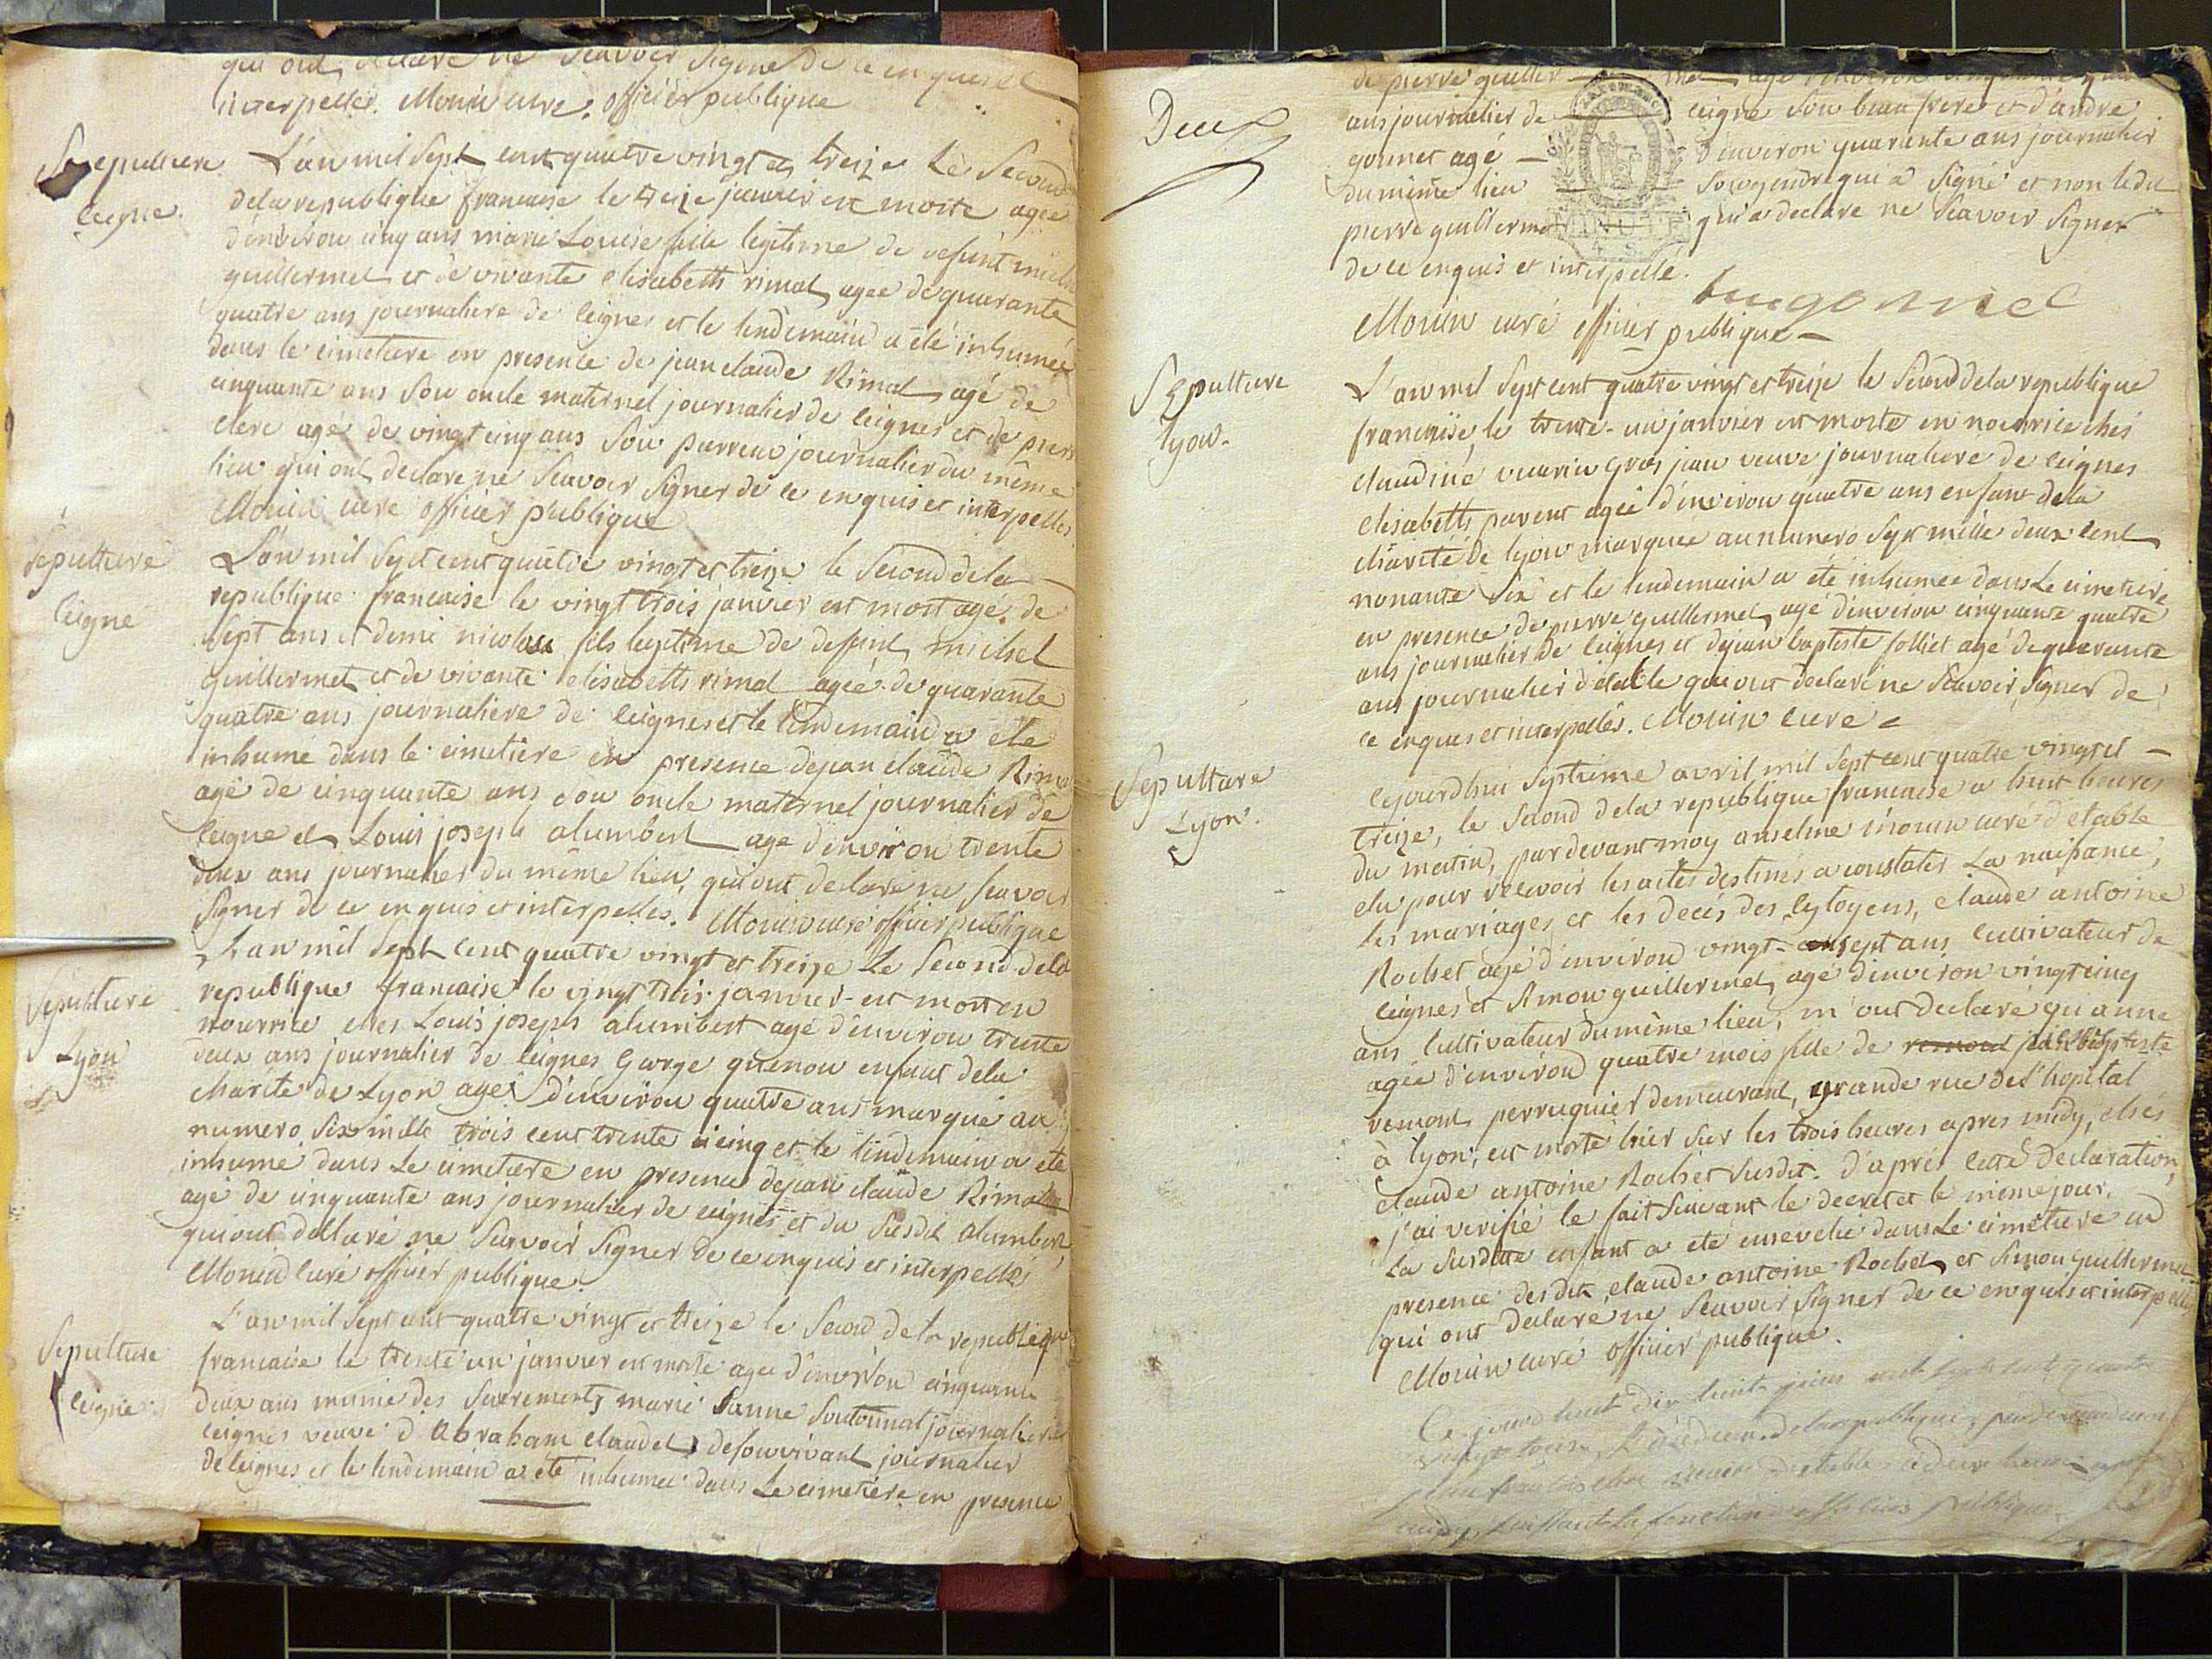 qui ont déclaré ne scavoir signer de ce enquis et
interpellés. Monin curé officier publique
Sepulture
ceigne.
L'an mil sept cent quatre vingt et treize le second
de la republique francaise le treize janvier est morte agée
d'environ cinq ans marie Louise fille legitime de defunt michel
guillermet et de vivante elisabeth rimal agée de quarante
quatre ans journaliere de ceignes et le lendemain a été inhumée
dans le cimetiere en presence de jean claude Rimal agé de
cinquante ans son oncle maternel journalier de ceignes et de pierre
clerc agé de vingt cinq ans son parrein journalier du même
lieu qui ont declaré ne scavoir signer de ce enquis et interpellés
Monin curé officier publique
sepulture
ceigne
L'an mil sept cent quatre vingt et treize le second de la
republique francaise le vingt trois janvier est mort agé de
sept ans et demi nicolas fils legitime de defunt michel
guillermet et de vivante elisabeth rimal agée de quarante
quatre ans journaliere de ceignes et le lendemain a été
inhumé dans le cimetiere en presence de jean claude Rimal
agé de cinquante ans son oncle maternel journalier de
ceigne et Louis joseph alumbert agé d'environ trente
deux ans journalier du même lieu, qui ont declaré ne scavoir
signer de ce enquis et interpellés. Monin curé officier publique
sepulture
Lyon
L'an mil sept cent quatre vingt et treize le second de la
republique francaise le vingt trois janvier est mort en
nourrice ches Louis joseph alumbert agé d'environ trente
deux ans journalier de ceignes george quenon enfant de la
charité de Lyon agé d'environ quatre ans marqué au
numero six mille trois cent trente cinq et le lendemain a été
inhumé dans le cimetiere en presence de jean claude Rimal
agé de cinquante ans journalier de ceignes et du susdit alumbert
qui ont déclaré ne scavoir signer de ce enquis et interpellés
Monin curé officier publique.
Sepulture
ceigne
L'an mil sept cent quatre vingt et treize le second de la republique
francaise le trente un janvier est morte agée d'environ cinquante
deux ans munie des sacrements marie journaliere
ceignes veuve d'Abraham claudet de son vivant journalier
de ceignes et le lendemain a été inhumée dans le cimetiere en presence
Deux
de pierre guillermet agé d'environ cinquante quatre
ans journalier de ceigne son beau frere et d'andre
gonnet agé d'environ quarante ans journalier
du même lieu son gendre qui a signé et non le dit
pierre guillermet qui a declaré ne scavoir signer
de ce enquis et interpellé.
Monin curé officier publique
Sepulture
lyon.
L'an mil sept cent quatre vingt et treize le second de la republique
francaise, le trente-un janvier est morte en nourrice ches
claudine vuarin gros jean veuve journaliere de ceignes
elisabeth parent agée d'environ quatre ans enfant de la
charité de lyon marquée au numero sept mille deux cent
nonante six et le lendemain a été inhumée dans le cimetiere
en presence de pierre guillermet agé d'environ cinquante quatre
ans journalier de ceignes et de jean baptiste folliet agé de quarante
ans journalier d'étable qui ont declaré ne scavoir signer de
ce enquis et interpellés. Monin curé
Sepulture
Lyon.
cejourdhui septieme avril mil sept cent quatre vingt et
treize, le second de la republique francaise a huit heures
du matin, pardevant moy anselme monin curé d'étable
elu pour recevoir les actes destinés a constater La naissance,
les mariages et les decés des cytoyens, claude antoine
Rochet agé d'environ vingt-sept ans cultivateur de
ceignes et simon guillermet agé d'environ vingt cinq
ans cultivateur du même lieu, m'ont declaré qu'anne
agée d'environ quatre mois fille de remond jean baptiste
remond perruquier demeurant, grande rue de l'hopital
à lyon; est morte hier sur les trois heures apres midy, chés
claude antoine Rochet susdit. d'après cette declaration,
j'ai verifié le fait suivant le decret et le même jour.
La susditte enfant a été ensevelie dans le cimetiere en
presence desdits claude antoine Rochet et simon guillermet
qui ont declaré ne scavoir signer de ce enquis et interpellés
Monin curé officier publique.